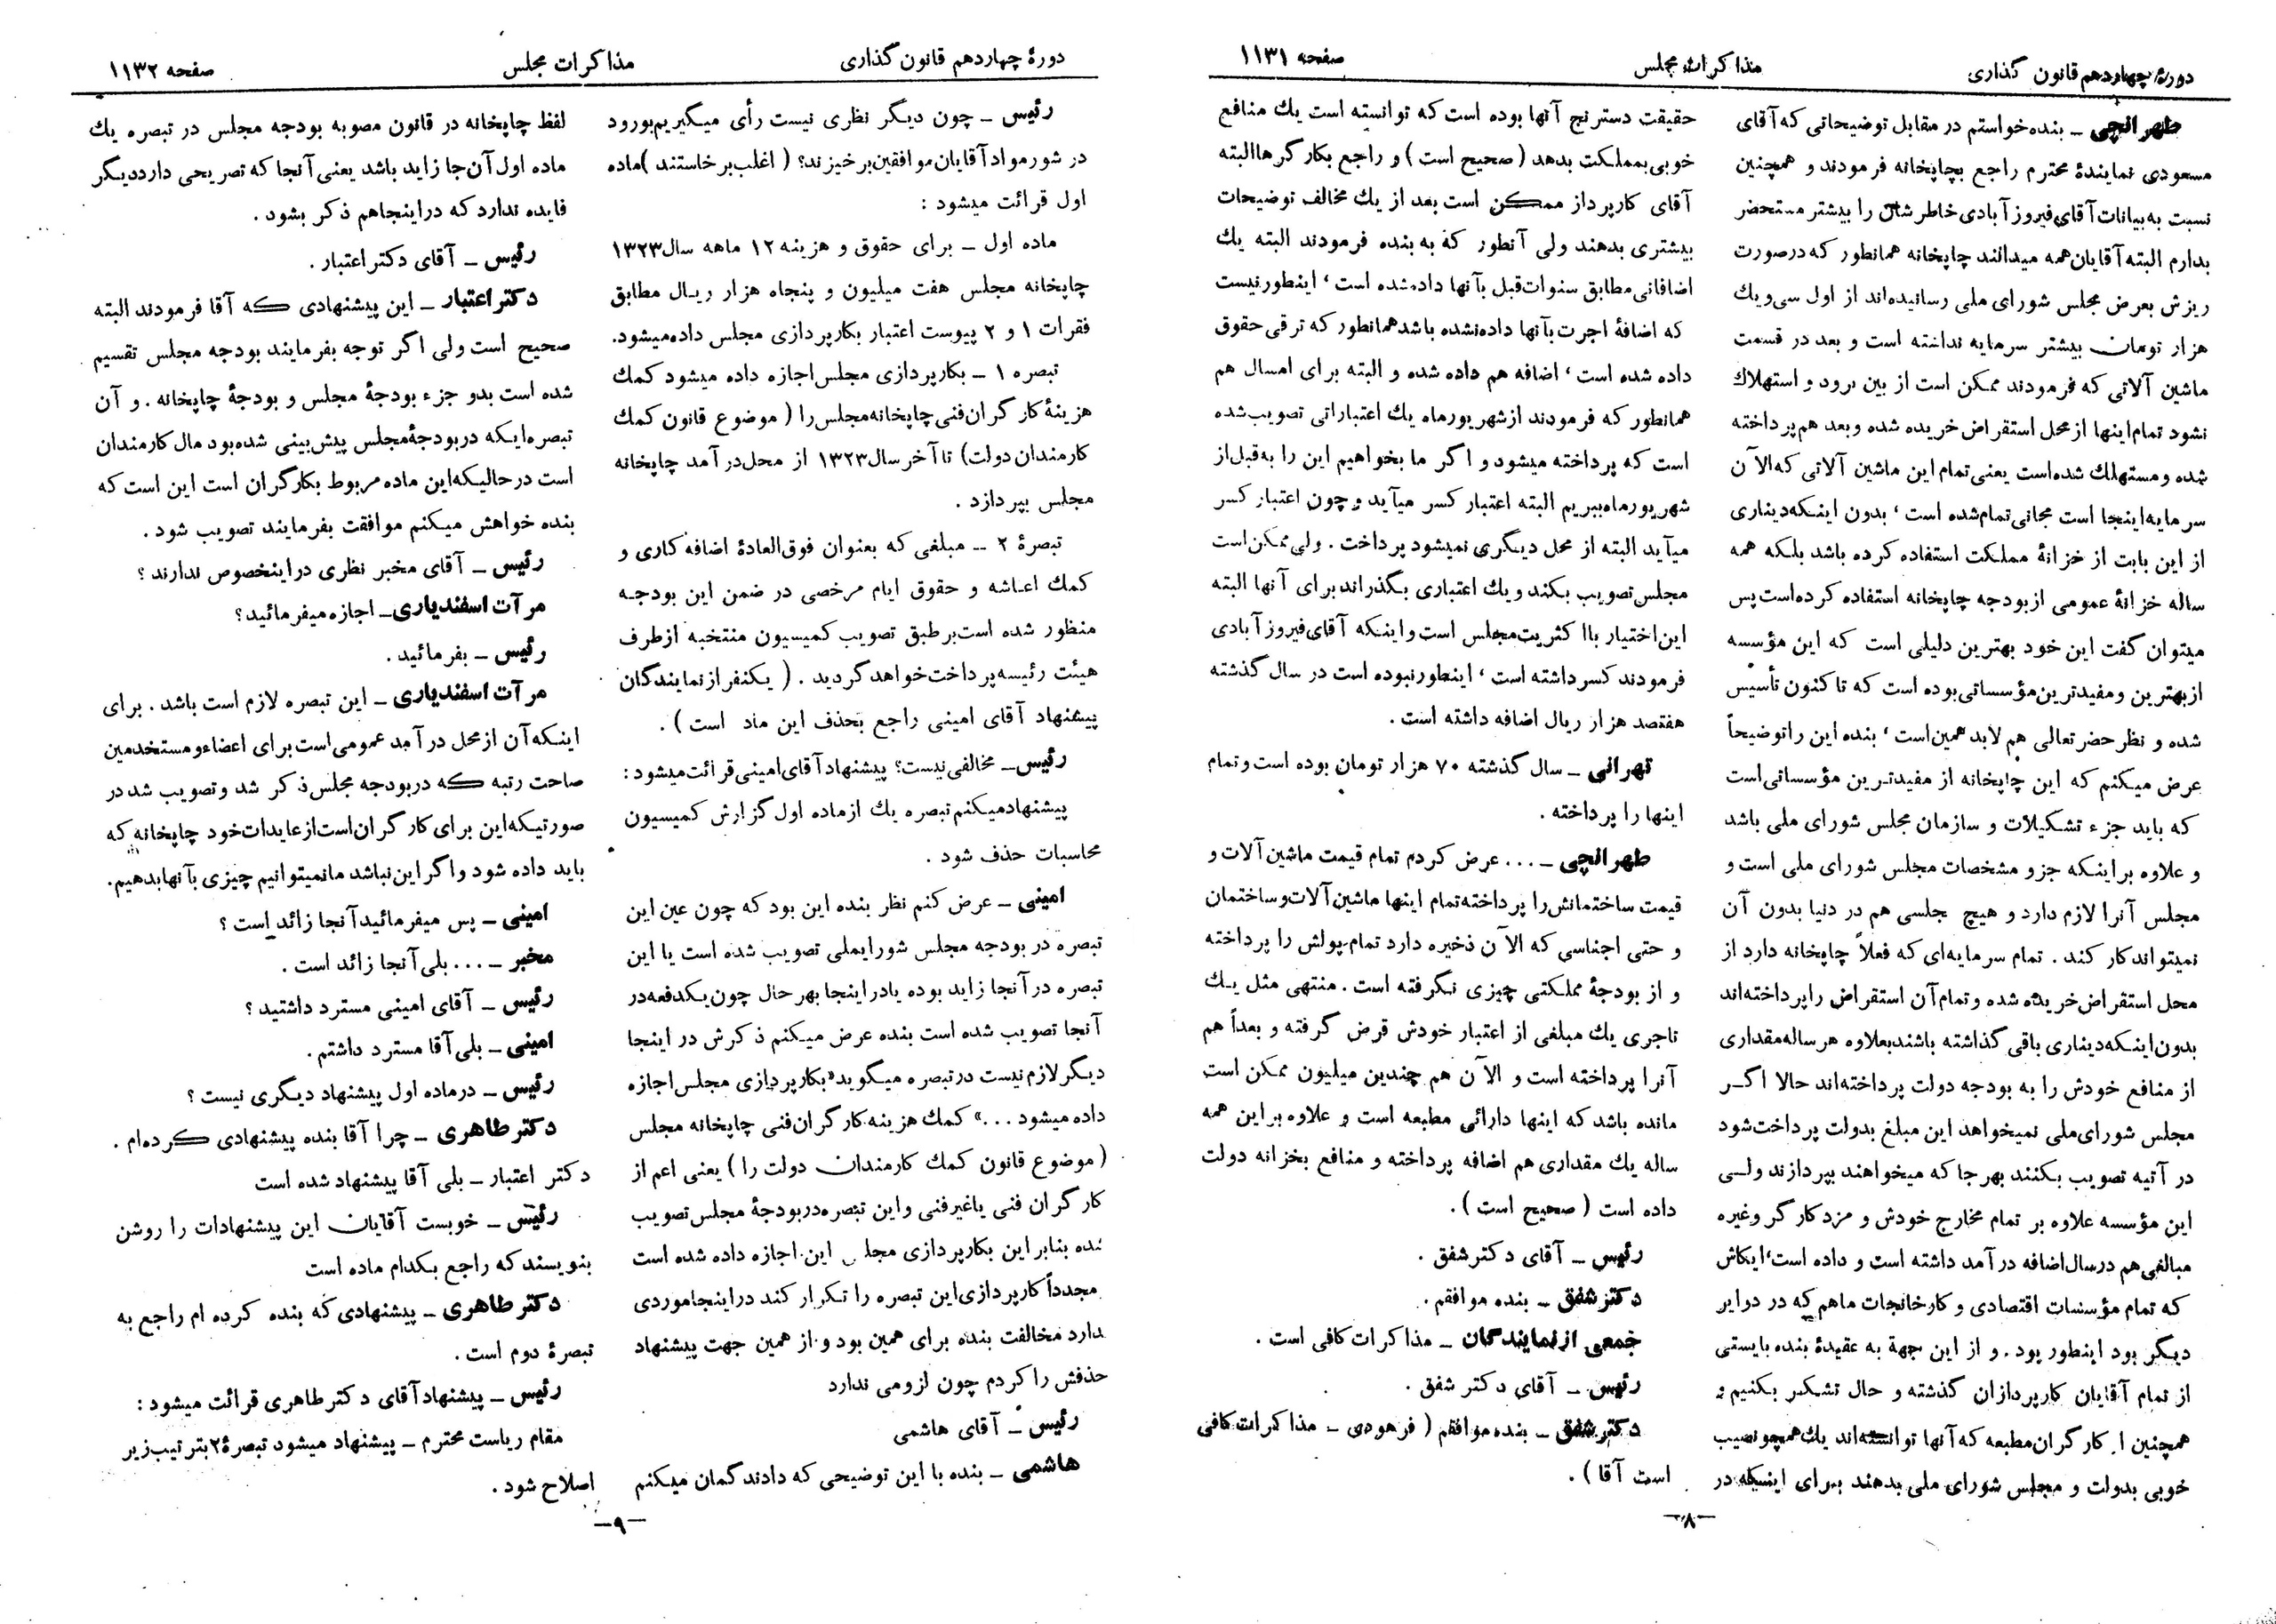 دورهٔ چهاردهم قانون گذاری
مذاکرات مجلس
صفحه ۱۱۳۱
طهرانچی ــ بنده خواستم در مقابل توضیحاتی که آقای
مسعودی نمایندهٔ محترم راجع بچاپخانه فرمودند و همچنین
نسبت به بیانات آقای فیروزآبادی خاطرشان را بیشتر مستحضر
بدارم البته آقایان همه میدانند چاپخانه همانطور که درصورت
ریزش بعرض مجلس شورای ملی رسانیده‌اند از اول سی‌ویك
هزار تومان بیشتر سرمایه نداشته است و بعد در قسمت
ماشین آلاتی که فرمودند ممکن است از بین برود و استهلاك
نشود تمام اینها از محل استقراض خریده شده و بعد هم پرداخته
شده و مستهلك شده‌است یعنی تمام این ماشین آلاتی که الآن
سرمایه اینجا است مجانی تمام شده است ، بدون اینکه دیناری
از این بابت از خزانهٔ مملکت استفاده کرده باشد بلکه همه
ساله خزانهٔ عمومی از بودجه چاپخانه استفاده کرده‌است پس
میتوان گفت این خود بهترین دلیلی است که این مؤسسه
از بهترین و مفیدترین مؤسساتی بوده است که تاکنون تأسیس
شده و نظر حضرتعالی هم لابد همین است ، بنده این را توضیحاً
عرض میکنم که این چاپخانه از مفیدترین مؤسساتی است
که باید جزء تشکیلات و سازمان مجلس شورای ملی باشد
و علاوه بر اینکه جزو مشخصات مجلس شورای ملی است و
مجلس آنرا لازم دارد و هیچ مجلسی هم در دنیا بدون آن
نمیتواند کار کند . تمام سرمایه‌ای که فعلاً چاپخانه دارد از
محل استقراض خریده شده و تمام آن استقراض را پرداخته‌اند
بدون اینکه دیناری باقی گذاشته باشند بعلاوه هر ساله مقداری
از منافع خودش را به بودجه دولت پرداخته‌اند حالا اگر
مجلس شورای ملی نمیخواهد این مبلغ بدولت پرداخت شود
در آتیه تصویب بکنند بهرجا که میخواهند بپردازند ولی
این مؤسسه علاوه بر تمام مخارج خودش و مزد کارگر و غیره
مبالغی هم درسال اضافه درآمد داشته است و داده است ، ایکاش
که تمام مؤسسات اقتصادی و کارخانجات ما هم که در دوایر
دیگر بود اینطور بود . و از این جهة به عقیدهٔ بنده بایستی
از تمام آقایان کارپردازان گذشته و حال تشکر بکنیم و
همچنین از کارگران مطبعه که آنها توانسته‌اند یك همچو نصیب
خوبی بدولت و مجلس شورای ملی بدهند برای اینکه در
حقیقت دسترنج آنها بوده است که توانسته است یك منافع
خوبی بمملکت بدهد ( صحیح است ) و راجع بکارگرها البته
آقای کارپرداز ممکن است بعد از یك مخالف توضیحات
بیشتری بدهند ولی آنطور که به بنده فرمودند البته یك
اضافاتی مطابق سنوات قبل بآنها داده شده است ، اینطور نیست
که اضافهٔ اجرت بآنها داده نشده باشد همانطور که ترقی حقوق
داده شده است ، اضافه هم داده شده و البته برای امسال هم
همانطور که فرمودند از شهریورماه یك اعتباراتی تصویب شده
است که پرداخته میشود و اگر ما بخواهیم این را به قبل از
شهریورماه ببریم البته اعتبار کسر میآید و چون اعتبار کسر
میآید البته از محل دیگری نمیشود پرداخت . ولی ممکن است
مجلس تصویب بکند و یك اعتباری بگذراند برای آنها البته
این اختیار با اکثریت مجلس است و اینکه آقای فیروزآبادی
فرمودند کسر داشته است ، اینطور نبوده است در سال گذشته
هفتصد هزار ریال اضافه داشته است .
تهرانی ــ سال گذشته ۷۰ هزار تومان بوده است و تمام
اینها را پرداخته .
طهرانچی ــ ... عرض کردم تمام قیمت ماشین آلات و
قیمت ساختمانش را پرداخته تمام اینها ماشین آلات و ساختمان
و حتی اجناسی که الآن ذخیره دارد تمام پولش را پرداخته
و از بودجهٔ مملکتی چیزی نگرفته است . منتهی مثل یك
تاجری یك مبلغی از اعتبار خودش قرض گرفته و بعداً هم
آنرا پرداخته است و الآن هم چندین میلیون ممکن است
مانده باشد که اینها دارائی مطبعه است و علاوه براین همه
ساله یك مقداری هم اضافه پرداخته و منافع بخزانه دولت
داده است ( صحیح است ) .
رئیس ــ آقای دکتر شفق .
دکتر شفق ــ بنده موافقم .
جمعی از نمایندگان ــ مذاکرات کافی است .
رئیس ــ آقای دکتر شفق .
دکتر شفق ــ بنده موافقم ( فرهودی ــ مذاکرات کافی
است آقا ) .
ــ۸ــ
دورهٔ چهاردهم قانون گذاری
مذاکرات مجلس
صفحه ۱۱۳۲
رئیس ــ چون دیگر نظری نیست رأی میگیریم بورود
در شور مواد آقایان موافقین برخیزند؟ ( اغلب برخاستند ) ماده
اول قرائت میشود :
ماده اول ــ برای حقوق و هزینه ۱۲ ماهه سال ۱۳۲۳
چاپخانه مجلس هفت میلیون و پنجاه هزار ریال مطابق
فقرات ۱ و ۲ پیوست اعتبار بکارپردازی مجلس داده میشود.
تبصره ۱ ــ بکارپردازی مجلس اجازه داده میشود کمك
هزینهٔ کارگران فنی چاپخانه مجلس را ( موضوع قانون کمك
کارمندان دولت) تا آخر سال ۱۳۲۳ از محل درآمد چاپخانه
مجلس بپردازد .
تبصرهٔ ۲ ــ مبلغی که بعنوان فوق‌العادهٔ اضافه کاری و
کمك اعاشه و حقوق ایام مرخصی در ضمن این بودجه
منظور شده است برطبق تصویب کمیسیون منتخبه از طرف
هیئت رئیسه پرداخت خواهد گردید . ( یکنفر از نمایندگان
پیشنهاد آقای امینی راجع بحذف این ماد است ) .
رئیس ــ مخالفی نیست؟ پیشنهاد آقای امینی قرائت میشود :
پیشنهاد میکنم تبصره یك از ماده اول گزارش کمیسیون
محاسبات حذف شود .
امینی ــ عرض کنم نظر بنده این بود که چون عین این
تبصره در بودجه مجلس شورایملی تصویب شده است یا این
تبصره در آنجا زاید بوده یا در اینجا بهر حال چون یکدفعه در
آنجا تصویب شده است بنده عرض میکنم ذکرش در اینجا
دیگر لازم نیست در تبصره میگوید «بکارپردازی مجلس اجازه
داده میشود ...» کمك هزینه کارگران فنی چاپخانه مجلس
( موضوع قانون کمك کارمندان دولت را ) یعنی اعم از
کارگران فنی یا غیر فنی و این تبصره در بودجهٔ مجلس تصویب
شده بنابراین بکارپردازی مجلس این اجازه داده شده است
مجدداً کارپردازی این تبصره را تکرار کند در اینجا موردی
ندارد مخالفت بنده برای همین بود و از همین جهت پیشنهاد
حذفش را کردم چون لزومی ندارد
رئیس ــ آقای هاشمی
هاشمی ــ بنده با این توضیحی که دادند گمان میکنم
لفظ چاپخانه در قانون مصوبه بودجه مجلس در تبصره یك
ماده اول آن‌جا زاید باشد یعنی آنجا که تصریحی دارد دیگر
فایده ندارد که در اینجا هم ذکر بشود .
رئیس ــ آقای دکتر اعتبار .
دکتر اعتبار ــ این پیشنهادی که آقا فرمودند البته
صحیح است ولی اگر توجه بفرمایند بودجه مجلس تقسیم
شده است بدو جزء بودجهٔ مجلس و بودجهٔ چاپخانه . و آن
تبصره‌ایکه در بودجهٔ مجلس پیش‌بینی شده بود مال کارمندان
است در حالیکه این ماده مربوط بکارگران است این است که
بنده خواهش میکنم موافقت بفرمایند تصویب شود .
رئیس ــ آقای مخبر نظری در اینخصوص ندارند ؟
مرآت اسفندیاری ــ اجازه میفرمائید؟
رئیس ــ بفرمائید .
مرآت اسفندیاری ــ این تبصره لازم است باشد . برای
اینکه آن از محل درآمد عمومی است برای اعضاء و مستخدمین
صاحت رتبه که در بودجه مجلس ذکر شد و تصویب شد در
صورتیکه این برای کارگران است از عایدات خود چاپخانه که
باید داده شود و اگر این نباشد ما نمیتوانیم چیزی بآنها بدهیم.
امینی ــ پس میفرمائید آنجا زائد است ؟
مخبر ــ ... بلی آنجا زائد است .
رئیس ــ آقای امینی مسترد داشتید ؟
امینی ــ بلی آقا مسترد داشتم .
رئیس ــ در ماده اول پیشنهاد دیگری نیست ؟
دکتر طاهری ــ چرا آقا بنده پیشنهادی کرده‌ام .
دکتر اعتبار ــ بلی آقا پیشنهاد شده است
رئیس ــ خوبست آقایان این پیشنهادات را روشن
بنویسند که راجع بکدام ماده است
دکتر طاهری ــ پیشنهادی که بنده کرده ام راجع به
تبصرهٔ دوم است .
رئیس ــ پیشنهاد آقای دکتر طاهری قرائت میشود :
مقام ریاست محترم ــ پیشنهاد میشود تبصرهٔ ۲ بترتیب زیر
اصلاح شود .
ــ۹ــ